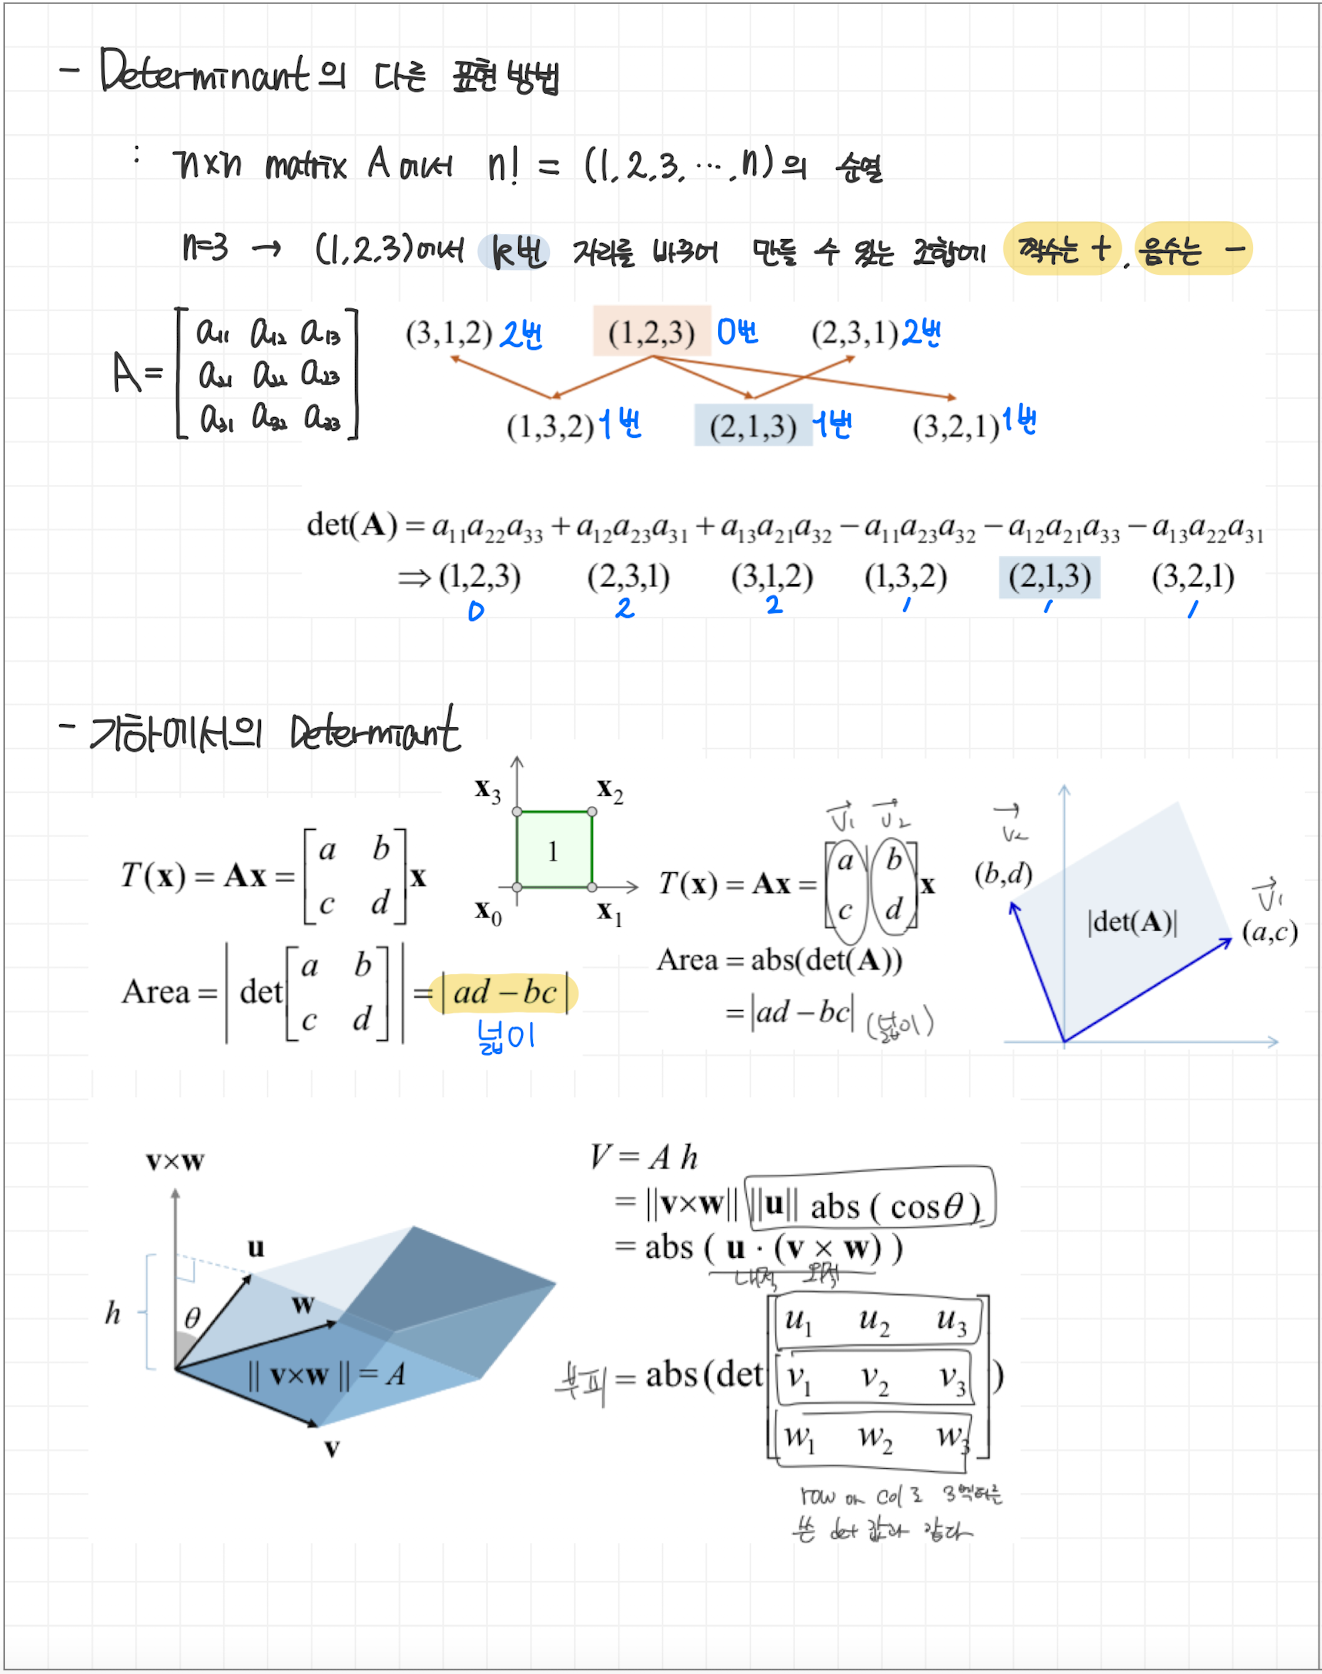 - Determinant의 다른 표현방법
: n×n matrix A에서 n! = (1, 2, 3, ⋯, n)의 순열
n=3 → (1, 2, 3)에서 k번 자리를 바꾸어 만들 수 있는 조합에 짝수는 +, 음수는 -
(3,1,2) 2번 (1,2,3) 0번 (2,3,1) 2번
A = [a11 a12 a13
a21 a22 a23
a31 a32 a33]
(1,3,2) 1번 (2,1,3) 1번 (3,2,1) 1번
det(A) = a₁₁a₂₂a₃₃ + a₁₂a₂₃a₃₁ + a₁₃a₂₁a₃₂ − a₁₁a₂₃a₃₂ − a₁₂a₂₁a₃₃ − a₁₃a₂₂a₃₁
⇒ (1,2,3) (2,3,1) (3,1,2) (1,3,2) (2,1,3) (3,2,1)
0 2 2 1 1 1
- 기하에서의 Determiant
T(x) = Ax = [a b
c d] x
Area = | det [a b
c d] | = |ad − bc|
넓이
x₃ x₂
1
x₀ x₁
v₁ v₂
T(x) = Ax = [a b
c d] x
Area = abs(det(A))
= |ad − bc| (넓이)
v₂
(b,d)
v₁
(a,c)
|det(A)|
v×w
u
h
θ
w
|| v×w || = A
v
V = A h
= ||v×w|| ||u|| abs ( cosθ )
= abs ( u · (v × w) )
내적 외적
부피 = abs (det [u₁ u₂ u₃
v₁ v₂ v₃
w₁ w₂ w₃])
row or col로 3벡터를
쓴 det 값과 같다